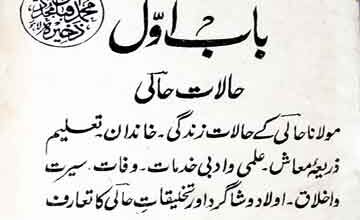 باب اوّل
حالات حالی
مولانا حالی کے حالات زندگی۔ خاندان۔ تعلیم
ذریعۂ معاش۔ علمی و ادبی خدمات۔ وفات۔ سیرت
و اخلاق۔ اولاد و شاگرد اور تخلیقاتِ حالی کا تعارف